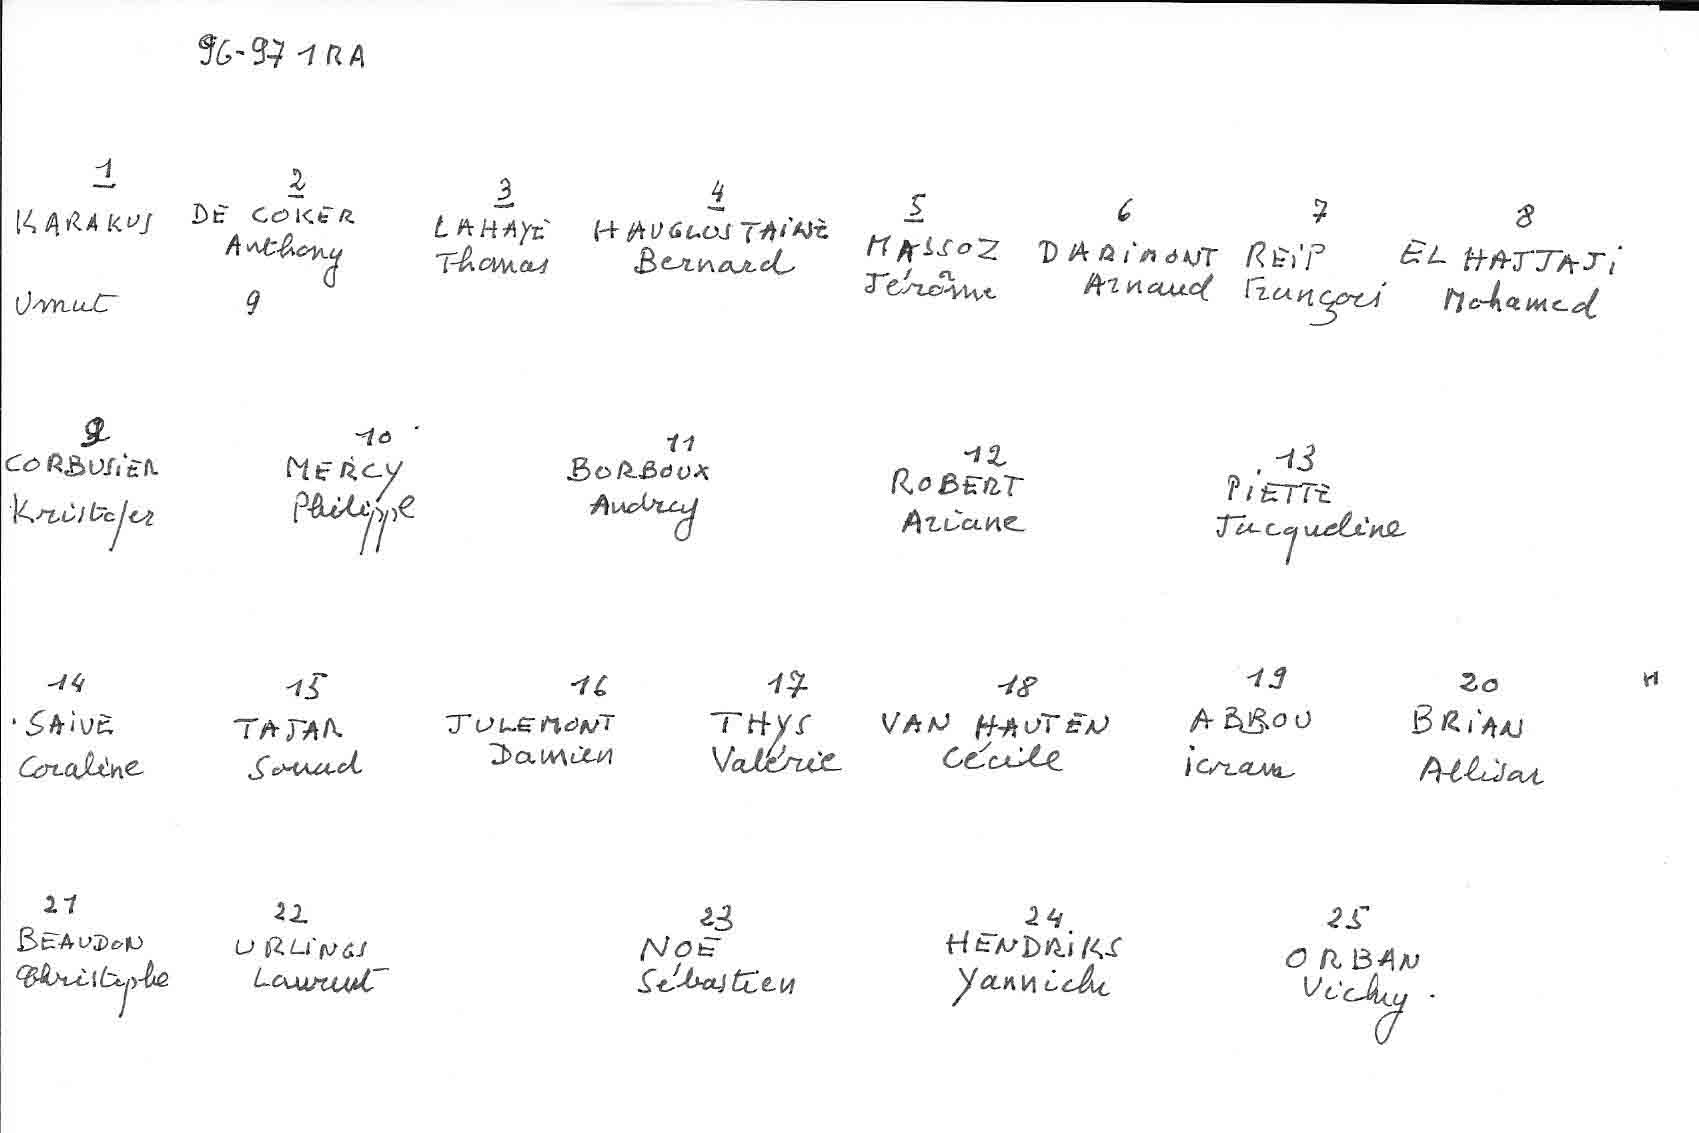 96-97 1RA
1 2 3 4 5 6 7 8
KARAKUS DE COKER LAHAYE HAUGLUSTAINE MASSOZ DARIMONT REIP EL HAJJAJI
Umut Anthony Thomas Bernard Jérôme Arnaud François Mohamed
9
9 10 11 12 13
CORBUSIER MERCY BORBOUX ROBERT PIETTE
Kristofer Philippe Audrey Ariane Jacqueline
14 15 16 17 18 19 20
SAIVE TAJAR JULEMONT THYS VAN HAUTEN ABBOU BRIAN
Coraline Souad Damien Valérie Cécile icram Allisar
21 22 23 24 25
BEAUDON URLINGS NOE HENDRIKS ORBAN
Christophe Laurent Sébastien Yannick Vicky.